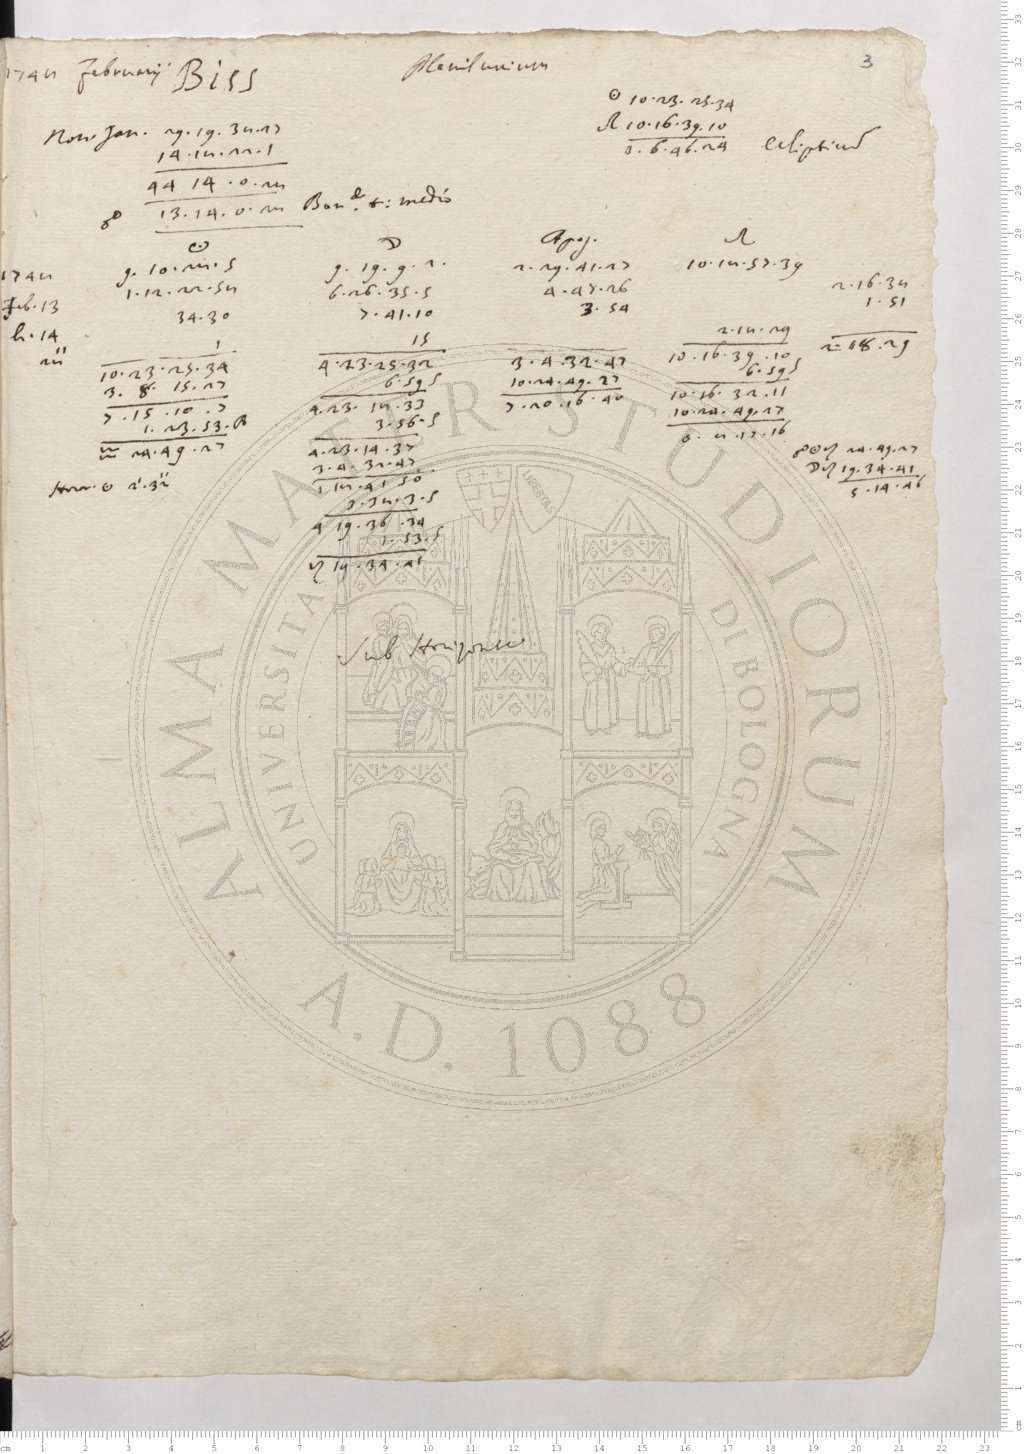 1748 Februarij Biss Plenilunium
3
☉ 10.23.25.34
☊ 10.16.39.10
0.6.46.24
Nov. Jan. 29.19.38.27
14.18.22.1
44 14.0.28
☍ 13.14.0.28
☉ ☽ Apog. ☊
1748 9.10.28.5 9.19.9.2. 2.29.41.27 10.18.57.39 2.16.38
Feb.13 1.12.22.58 6.26.35.5 4.47.26 1.51
h.14 34.30 7.41.10 3.54 2.18.29 2.18.29
28" 1 15
10.23.25.34 4.23.25.32 3.4.32.47 10.16.39.10
3.8.15.27 6.59 S 10.24.49.27 6.59 S
7.15.10.7 4.23.18.33 7.20.16.40 10.16.32.11
1.23.53.A 3.56.S 10.24.49.27
♒ 24.49.27 4.23.14.37 0.8.17.16
3.4.32.47 ☍☉♌ 24.49.27
Hor. ☉ 2'.32" 1 18.41.50 ☽♌ 19.34.41
3.38.3.S 5.14.46
4 19.36.34
1.53.S
♌ 19.34.41
Sub Horizonte
ALMA MATER STUDIORUM
UNIVERSITÀ DI BOLOGNA
LIBERTAS
A.D. 1088